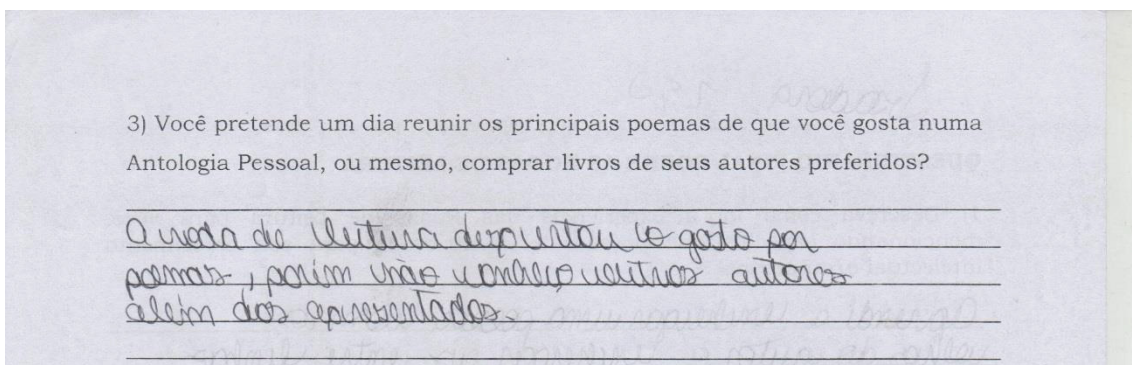 3) Você pretende um dia reunir os principais poemas de que você gosta numa
Antologia Pessoal, ou mesmo, comprar livros de seus autores preferidos?
A roda de leitura despertou o gosto por
poemas, porém não conheço outros autores
além dos apresentados.